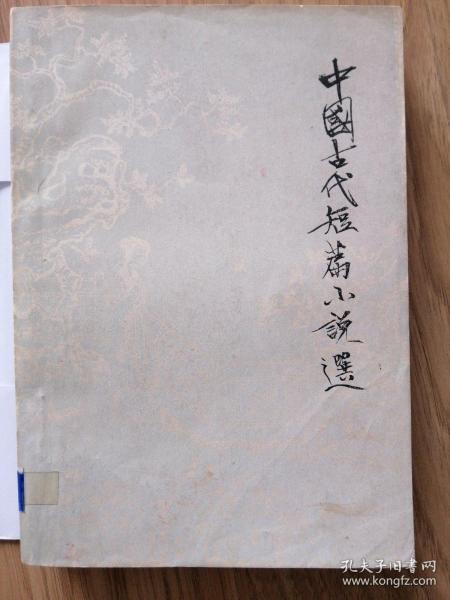 中國古代短篇小說選
孔夫子旧书网
www.kongfz.com